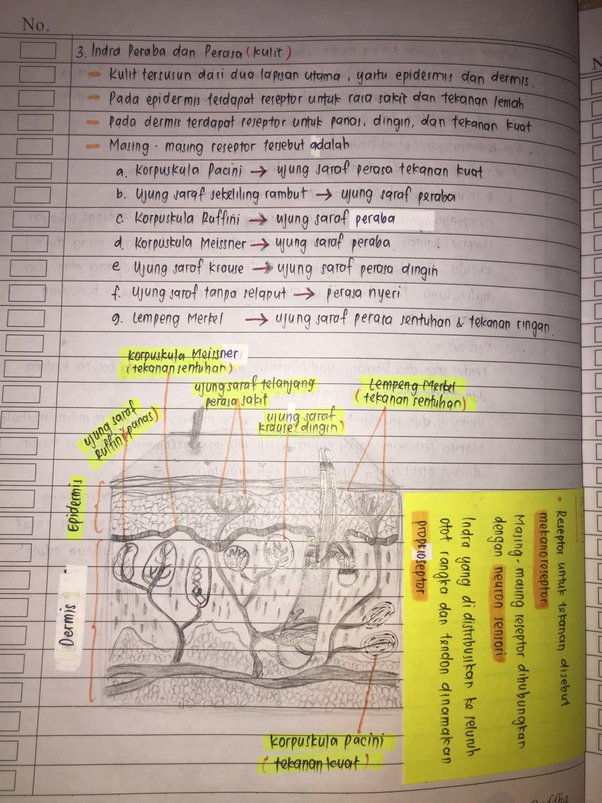 No.
3. Indra Peraba dan Perasa (kulit)
- Kulit tersusun dari dua lapisan utama, yaitu epidermis dan dermis.
- Pada epidermis terdapat reseptor untuk rasa sakit dan tekanan lemah
- Pada dermis terdapat reseptor untuk panas, dingin, dan tekanan kuat
- Masing-masing reseptor tersebut adalah
a. Korpuskula Pacini → ujung saraf perasa tekanan kuat
b. Ujung saraf sekeliling rambut → ujung saraf peraba
c Korpuskula Ruffini → ujung saraf peraba
d. Korpuskula Meissner → ujung saraf peraba
e Ujung saraf krause → ujung saraf perasa dingin
f. Ujung saraf tanpa selaput → perasa nyeri
g. Lempeng Merkel → ujung saraf perasa sentuhan & tekanan ringan.
Korpuskula Meissner
(tekanan sentuhan)
ujung saraf telanjang
perasa sakit
Lempeng Merkel
(tekanan sentuhan)
ujung saraf
Ruffini (panas)
ujung saraf
krause (dingin)
Epidermis
Dermis
Korpuskula Pacini
(tekanan kuat)
• Reseptor untuk tekanan disebut
mekanoreseptor
Masing-masing reseptor dihubungkan
dengan neuron sensori
Indra yang di distribusikan ke seluruh
otot rangka dan tendon dinamakan
proprioseptor